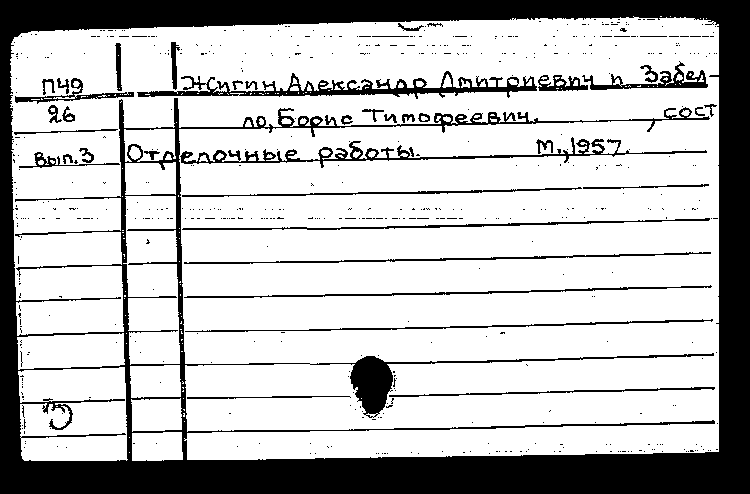 П49 Жигин, Александр Дмитриевич и Забел-
26 ло, Борис Тимофеевич. , сост
Вып.3 Отделочные работы. М., 1957.